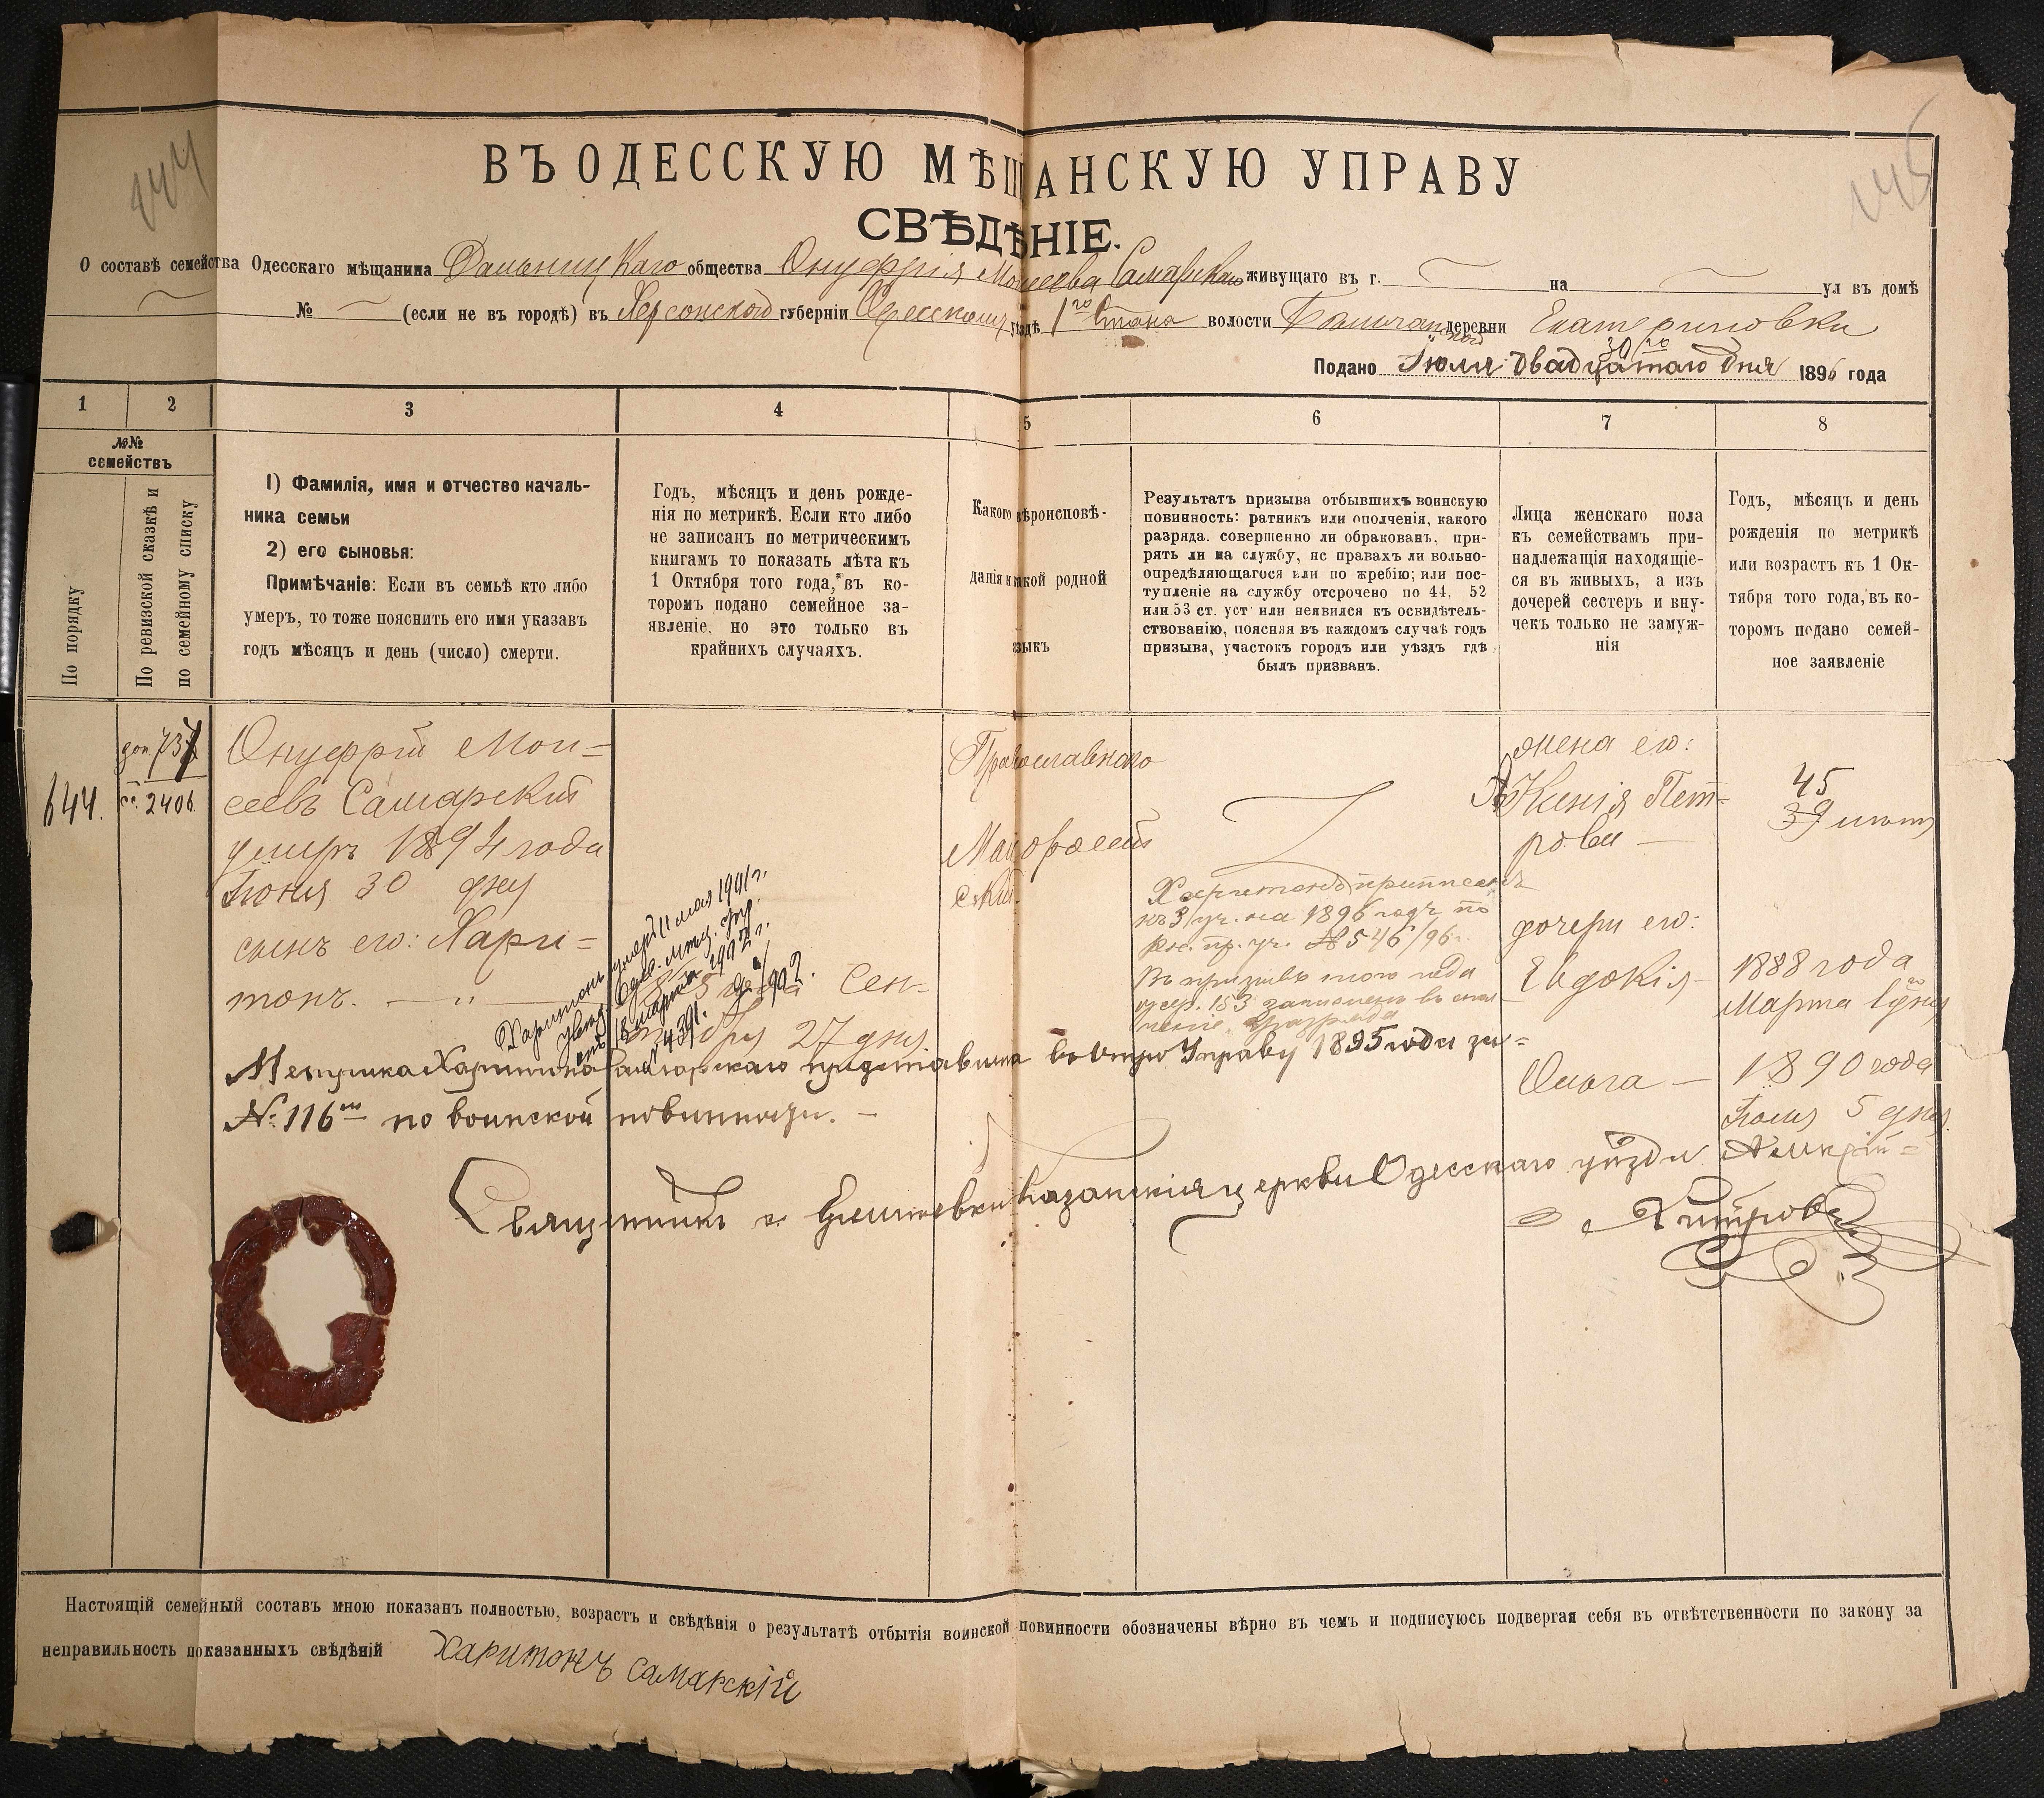 144
145
ВЪ ОДЕССКУЮ МѢЩАНСКУЮ УПРАВУ
СВѢДѢНІЕ.
О составѣ семейства Одесскаго мѣщанина Дальницкаго общества Онуфрія Моисеева Самарскаго живущаго въ г. на ул въ домѣ
№ (если не въ городѣ) въ Херсонской губерніи Одесскому уѣздѣ 1го Стана волости деревни Екатериновки
Подано Іюля двадцатаго дня 1896 года
30го
1 2 3 4 5 6 7 8
№№ семействъ
По порядку
По ревизской сказкѣ и
по семейному списку
1) Фамилія, имя и отчество началь-
ника семьи
2) его сыновья:
Примѣчаніе: Если въ семьѣ кто либо
умеръ, то тоже пояснить его имя указавъ
годъ мѣсяцъ и день (число) смерти.
Годъ, мѣсяцъ и день рожде-
нія по метрикѣ. Если кто либо
не записанъ по метрическимъ
книгамъ то показать лѣта къ
1 Октября того года, въ ко-
торомъ подано семейное за-
явленіе, но это только въ
крайнихъ случаяхъ.
Какого вѣроисповѣ-
данія и какой родной
языкъ
Результатъ призыва отбывшихъ воинскую
повинность: ратникъ или ополченія, какого
разряда. совершенно ли обракованъ, при-
рять ли на службу, нс правахъ ли вольно-
опредѣляющагося или по жребію; или пос-
тупленіе на службу отсрочено по 44, 52
или 53 ст. уст или неявился къ освидѣтель-
ствованію, поясняя въ каждомъ случаѣ годъ
призыва, участокъ городъ или уѣздъ гдѣ
былъ призванъ.
Лица женскаго пола
къ семействамъ при-
надлежащія находящіе-
ся въ живыхъ, а изъ
дочерей сестеръ и вну-
чекъ только не замуж-
нія
Годъ, мѣсяцъ и день
рожденія по метрикѣ
или возрастъ къ 1 Ок-
тября того года, въ ко-
торомъ подано семей-
ное заявленіе
644.
доп. 737
сс. 2406.
Онуфрій Мои=
сеевъ Самарскій
умеръ 1894 года
Іюня 30 дня
сынъ его: Хари=
тонъ. — „ —
Харитонъ умеръ 11 мая 1901 г.
18 марта 1902 г.
№ 4391.
года Сен-
тября 27 дня
Православнаго
Малоросcій
скій.
Харитонъ приписанъ
къ 3 уч. на 1896 годъ по
№ 546/96 г.
Въ призывѣ того года
жена его:
Ксенія Пет=
рова —
45
39 лѣтъ
дочери его:
Евдокія —
1888 года
Марта 1го дня
Ольга —
1890 года
Іюля 5 дня.
Метрика Харитона Самарскаго представлена въ Управу 1895 года за=
№ 116мъ по воинской повинности. —
Священникъ с. Казанскія церкви Одесскаго уѣзда
Хитровъ
Настоящій семейный составъ мною показанъ полностью, возрастъ и свѣдѣнія о результатѣ отбытія воинской повинности обозначены вѣрно въ чемъ и подписуюсь подвергая себя въ отвѣтственности по закону за
неправильность показанныхъ свѣдѣній
Харитонъ Самарскій